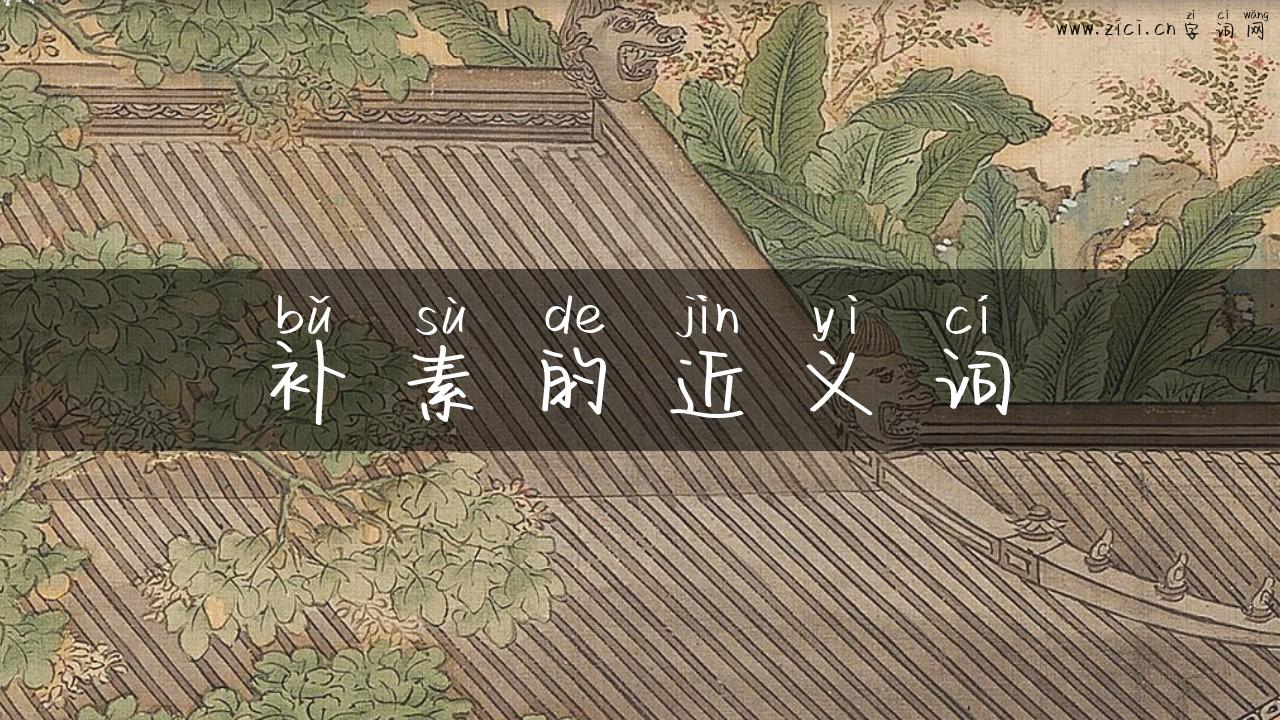 zì cí wǎng
www.zici.cn 字词网
bǔ sù de jìn yì cí
补素的近义词